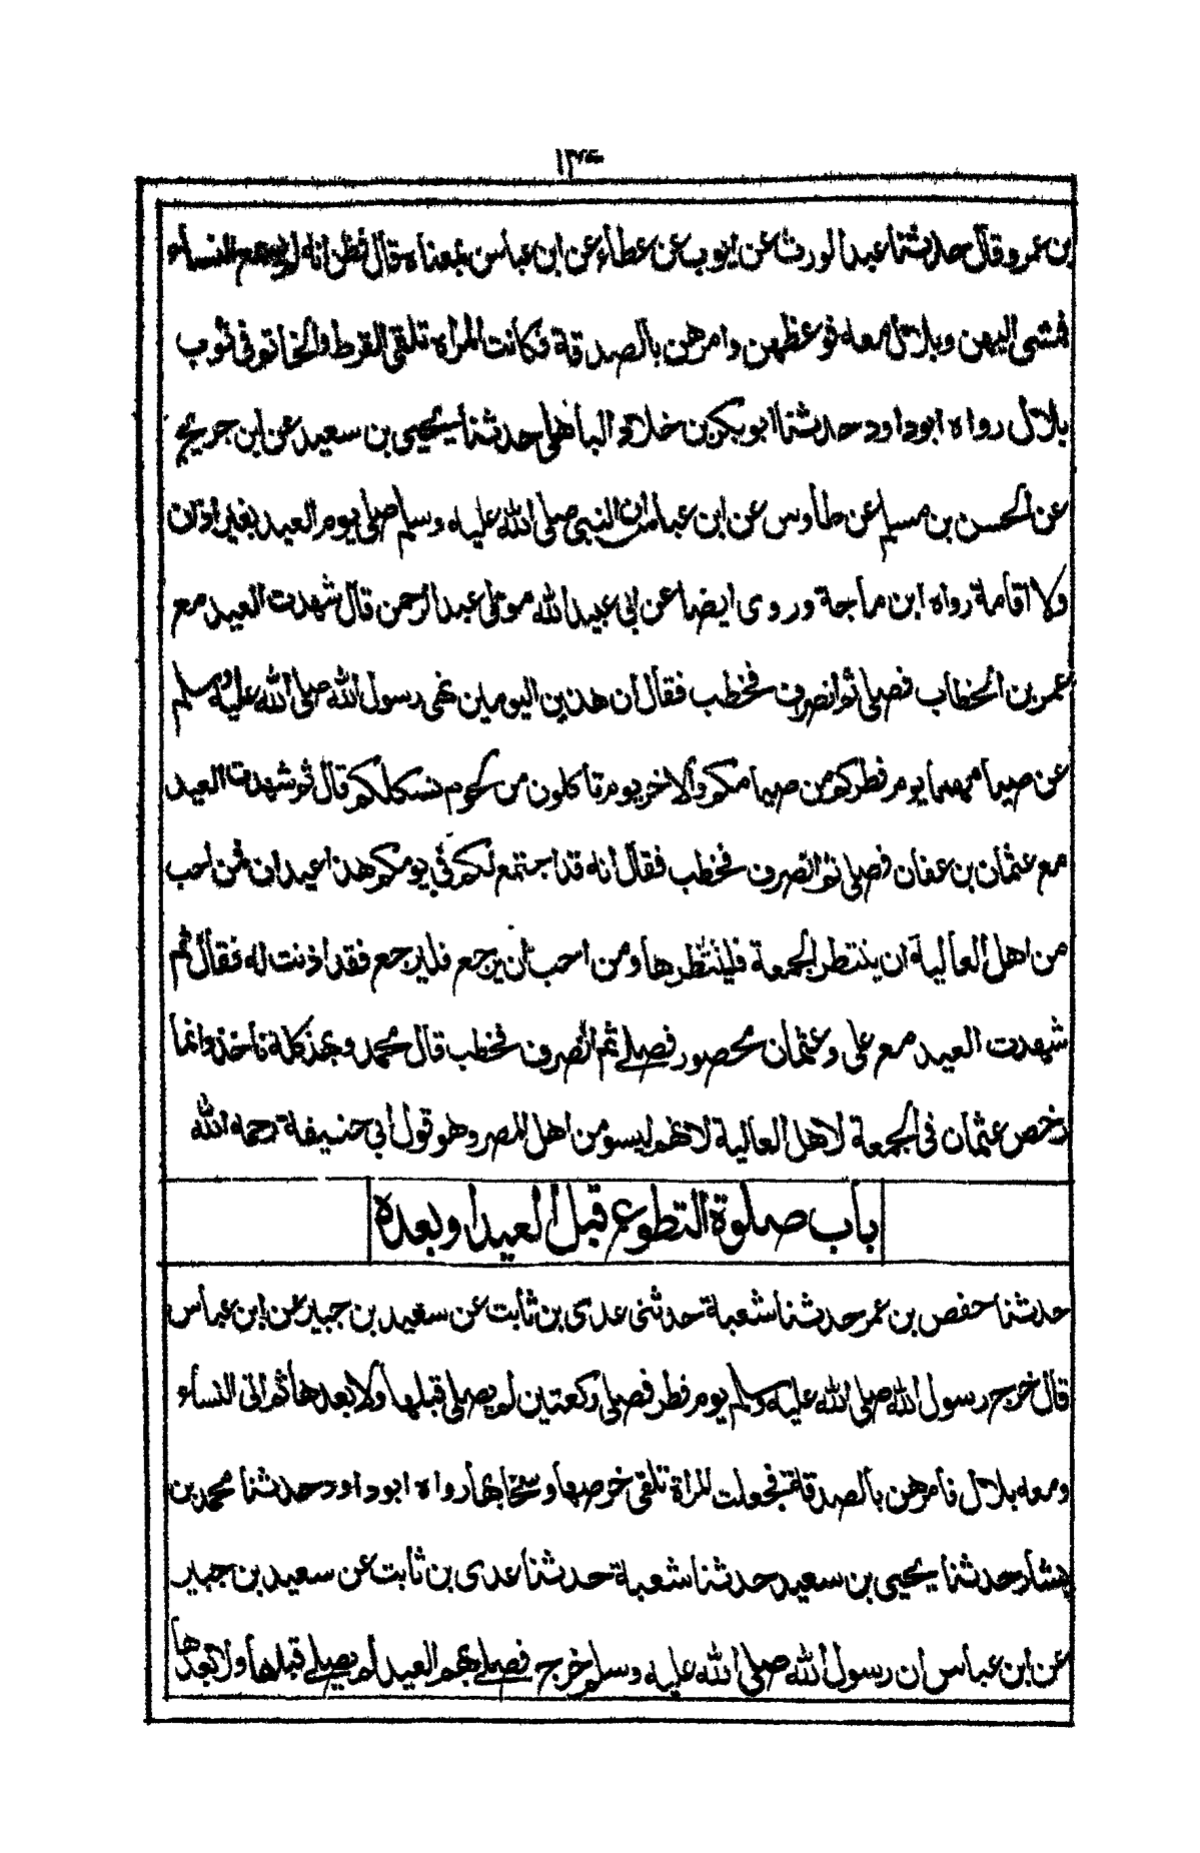 ١٣٠
بن عمرو قال حدثنا عبد الوارث عن ايوب عن عطاء عن ابن عباس بمعناه قال فظن انه لم يسمع النساء
فمشى اليهن وبلال معه فوعظهن وامرهن بالصدقة فكانت المرأة تلقى القرط والخاتم فى ثوب
بلال رواه ابوداود حدثنا ابوبكر بن خلاد الباهلى حدثنا يحيى بن سعيد عن ابن جريج
عن الحسن بن مسلم عن طاوس عن ابن عباس ان النبى صلى الله عليه وسلم صلى يوم العيد بغير اذان
ولا اقامة رواه ابن ماجة وروى ايضا عن ابى عبيد الله مولى عبد الرحمن قال شهدت العيد مع
عمر بن الخطاب فصلى ثم انصرف فخطب فقال ان هذين اليومين نهى رسول الله صلى الله عليه وسلم
عن صيامهما يوم فطركم من صيامكم والاخر يوم تأكلون من لحوم نسككم قال ثم شهدت العيد
مع عثمان بن عفان فصلى ثم انصرف فخطب فقال انه قد اجتمع لكم فى يومكم هذا عيدان فمن احب
من اهل العالية ان ينتظر الجمعة فلينتظرها ومن احب ان يرجع فليرجع فقد اذنت له فقال ثم
شهدت العيد مع على وعثمان محصور فصلى ثم انصرف فخطب قال محمد وبهذا كله نأخذ وانما
رخص عثمان فى الجمعة لاهل العالية لانهم ليسو من اهل المصر وهو قول ابى حنيفة رحمه الله
باب صلوة التطوع قبل العيد او بعده
حدثنا حفص بن عمر حدثنا شعبة حدثنى عدى بن ثابت عن سعيد بن جبير عن ابن عباس
قال خرج رسول الله صلى الله عليه وسلم يوم فطر فصلى ركعتين لم يصلى قبلها ولا بعدها ثم اتى النساء
ومعه بلال فأمرهن بالصدقة فجعلت المرأة تلقى خرصها وسخابها رواه ابوداود حدثنا محمد بن
بشار حدثنا يحيى بن سعيد حدثنا شعبة حدثنا عدى بن ثابت عن سعيد بن جبير
عن ابن عباس ان رسول الله صلى الله عليه وسلم خرج فصلى بهم العيد لم يصلى قبلها ولا بعدها